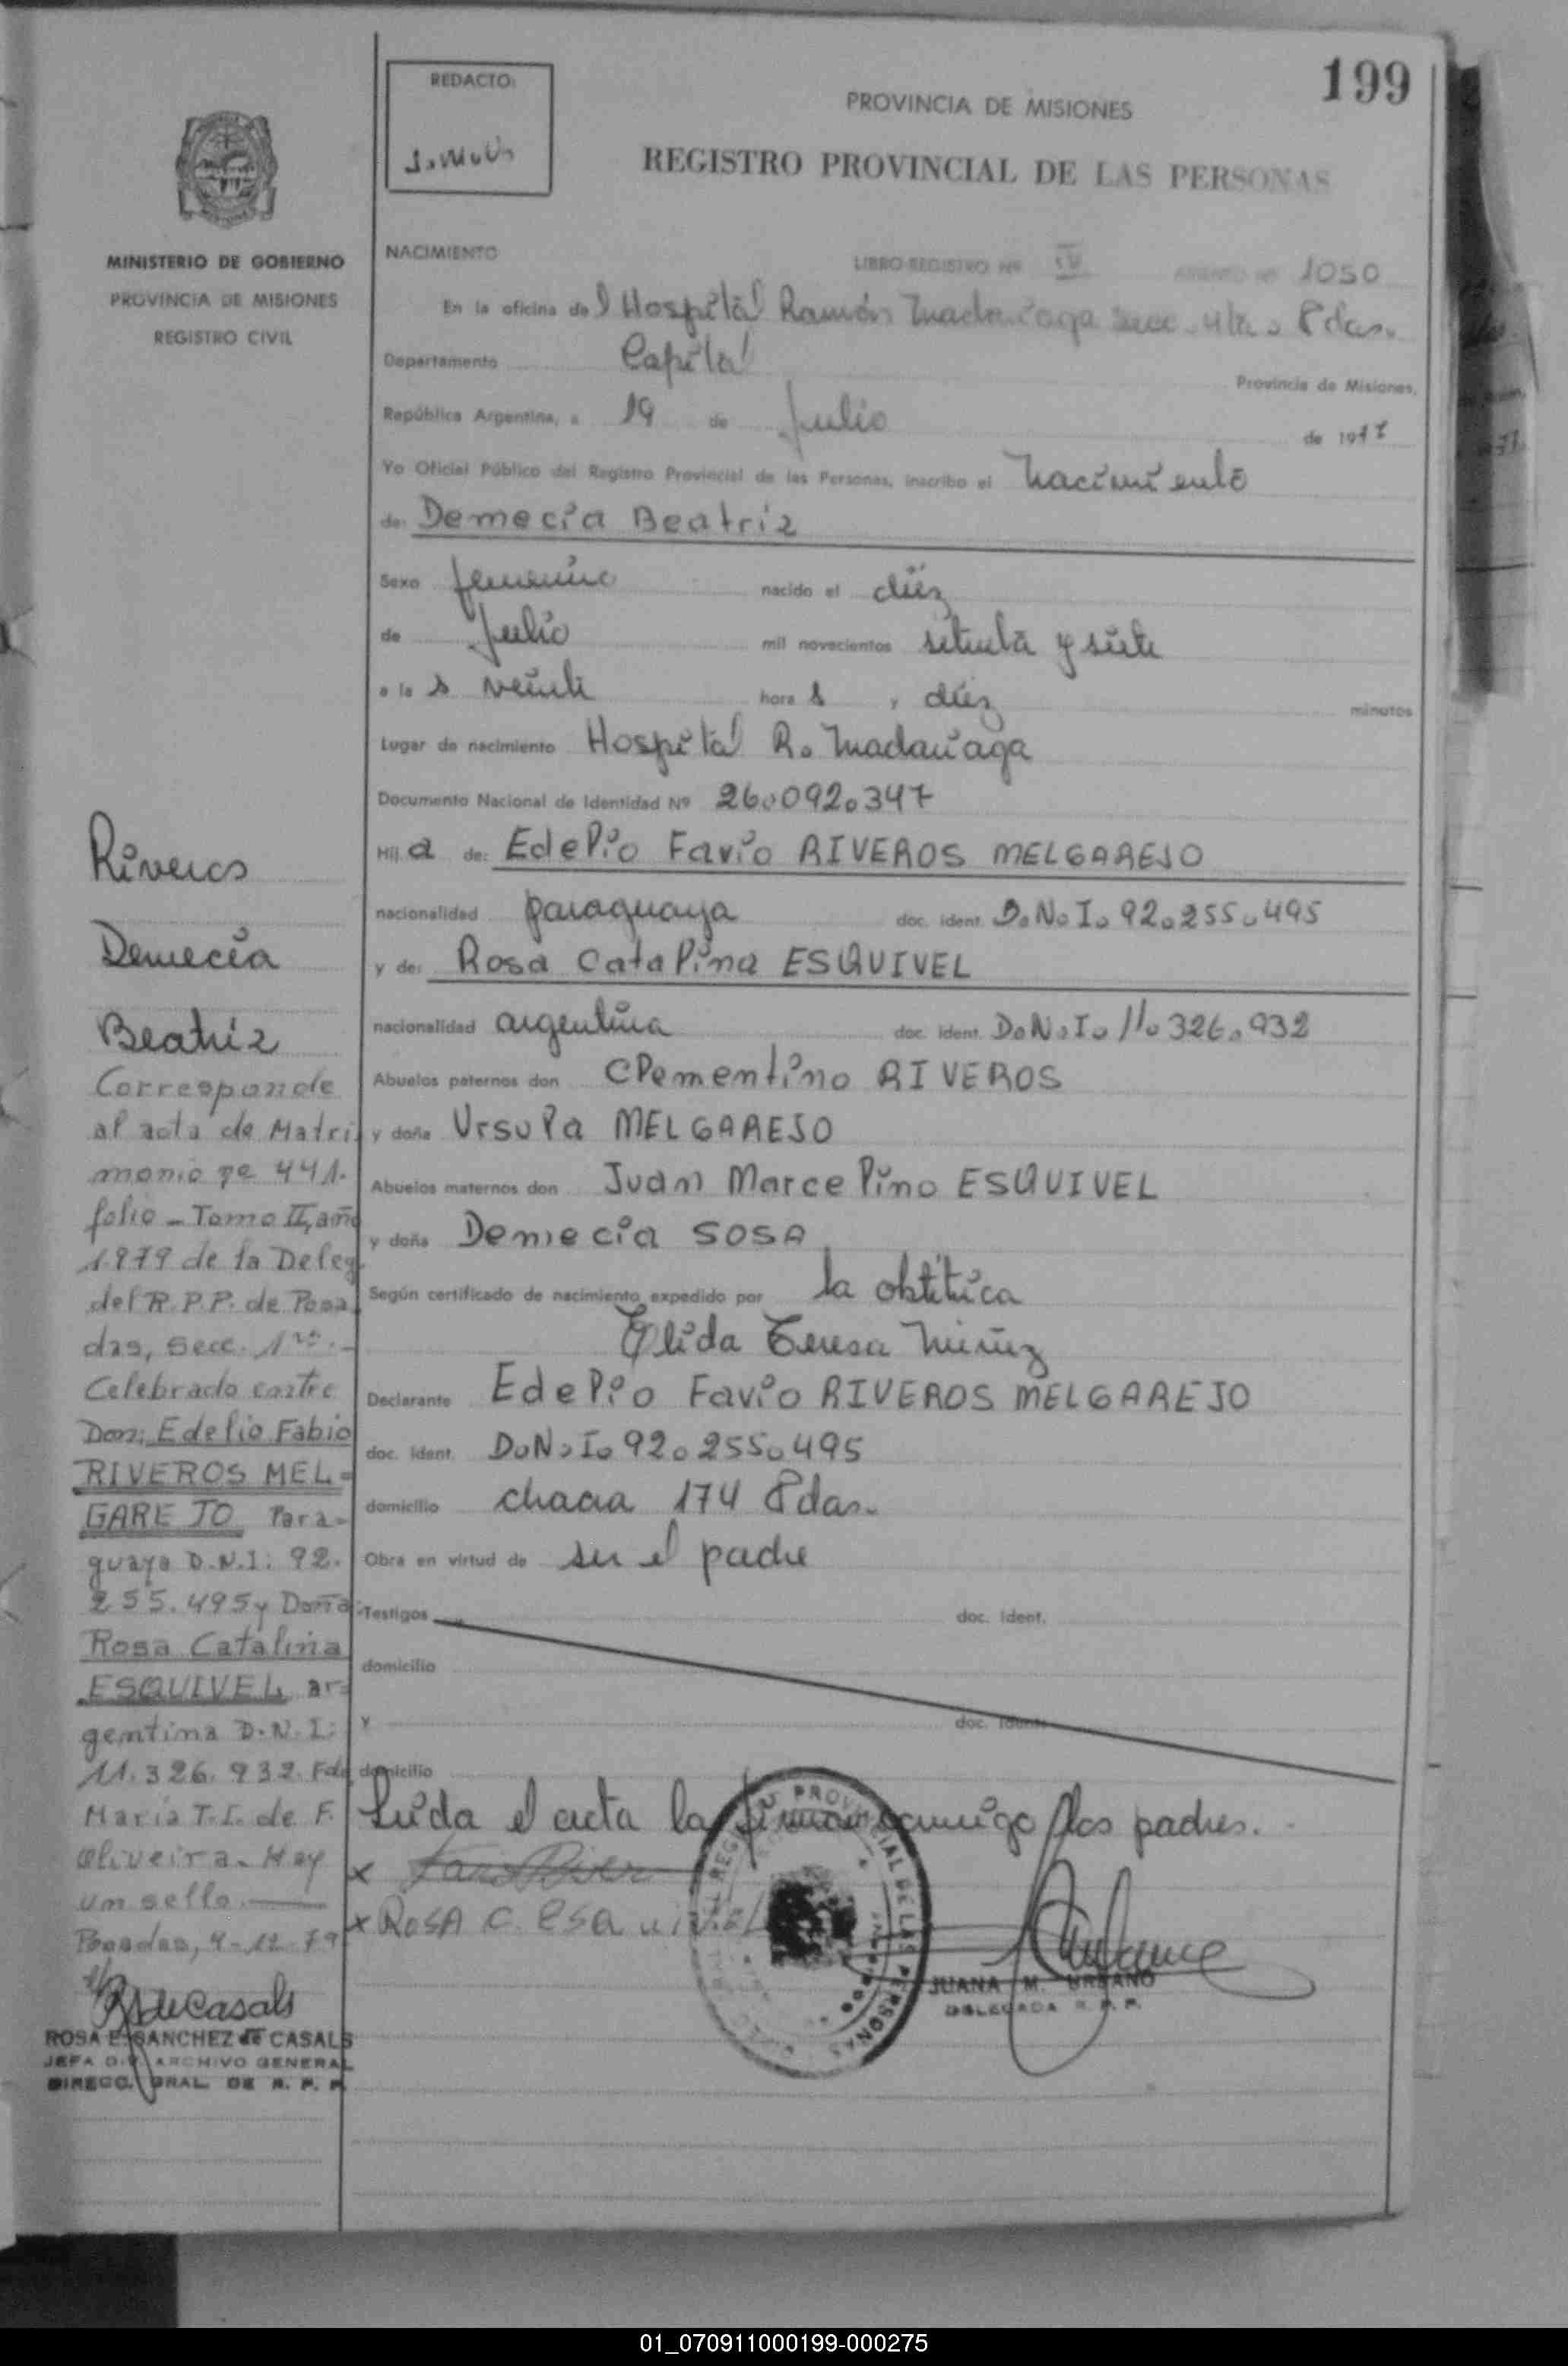 199
REDACTO:
PROVINCIA DE MISIONES
REGISTRO PROVINCIAL DE LAS PERSONAS
MINISTERIO DE GOBIERNO
PROVINCIA DE MISIONES
REGISTRO CIVIL
NACIMIENTO LIBRO REGISTRO Nº IV ASIENTO Nº 1050
En la oficina del Hospital Ramón Madariaga Secc. 4ta. Pdas.
Departamento Capital Provincia de Misiones,
República Argentina, a 19 de Julio de 1977
Yo Oficial Público del Registro Provincial de las Personas, inscribo el Nacimiento
de: Demecia Beatriz
Sexo femenino nacido el diez
de Julio mil novecientos setenta y siete
a las veinte horas y diez minutos
Lugar de nacimiento Hospital R. Madariaga
Documento Nacional de Identidad Nº 26.092.347
Hija de: Edelio Favio RIVEROS MELGAREJO
nacionalidad paraguaya doc. ident. D.N.I. 92.255.495
y de: Rosa Catalina ESQUIVEL
nacionalidad argentina doc. ident. D.N.I. 11.326.932
Abuelos paternos don Clementino RIVEROS
y doña Ursula MELGAREJO
Abuelos maternos don Juan Marcelino ESQUIVEL
y doña Demecia SOSA
Según certificado de nacimiento expedido por la obstétrica
Elida Teresa Núñez
Declarante Edelio Favio RIVEROS MELGAREJO
doc. ident. D.N.I. 92.255.495
domicilio chacra 174 Pdas.
Obra en virtud de ser el padre
Testigos doc. ident.
domicilio
Y doc. ident.
domicilio
Leída el acta la firman conmigo los padres.
x
x ROSA C. ESQUIVEL
REGISTRO PROVINCIAL DE LAS PERSONAS
JUANA M. URBANO
DELEGADA R. P. P.
Riveros
Demecia
Beatriz
Corresponde
al acta de Matri
monio Nº 441.
folio - Tomo II, año
1979 de la Deleg.
del R.P.P. de Posa
das, Secc. 1ra.-
Celebrado entre
Don: Edelio Fabio
RIVEROS MEL=
GAREJO Para=
guayo D.N.I: 92.
255.495 y Doña
Rosa Catalina
ESQUIVEL ar=
gentina D.N.I:
11.326.932. Fdo
María T.I. de F.
Oliveira. Hay
un sello.
Posadas, 4-12-79
R S de Casals
ROSA E. SANCHEZ de CASALS
JEFA DIV. ARCHIVO GENERAL
DIRECC. GRAL. DE R. P. P.
01_070911000199-000275